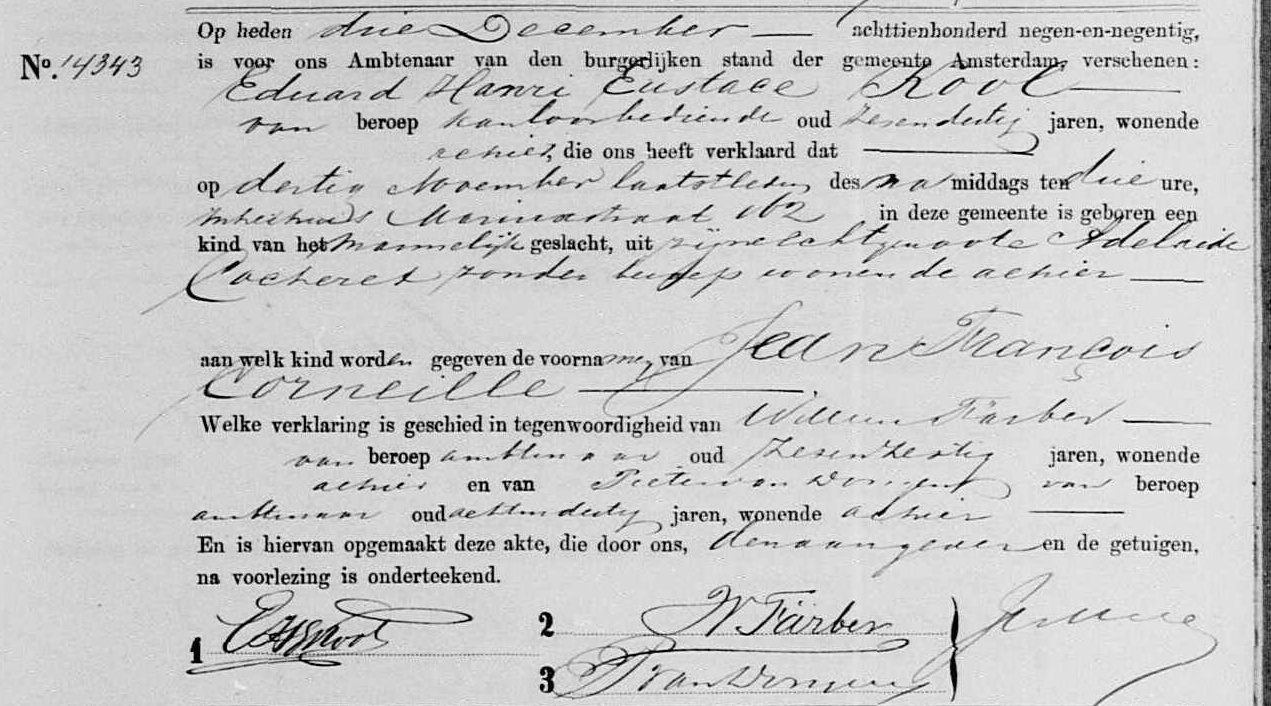 Op heden drie December achttienhonderd negen-en-negentig,
No. 14343 is voor ons Ambtenaar van den burgerlijken stand der gemeente Amsterdam, verschenen:
Eduard Henri Eustace Kool
van beroep kantoorbediende oud zesendertig jaren, wonende
alhier, die ons heeft verklaard dat
op dertig November laatstleden des na middags ten drie ure,
ten huize Marnixstraat 162 in deze gemeente is geboren een
kind van het mannelijk geslacht, uit zijne echtgenoote Adelaide
Cocheret zonder beroep wonende alhier
aan welk kind worden gegeven de voornamen van Jean François
Corneille
Welke verklaring is geschied in tegenwoordigheid van Willem Färber
van beroep ambtenaar oud zesenzestig jaren, wonende
alhier en van Pieter van Dongen van beroep
ambtenaar oud achtendertig jaren, wonende alhier
En is hiervan opgemaakt deze akte, die door ons, den aangever en de getuigen,
na voorlezing is onderteekend.
1 EHEKool
2 W Färber
3 P van Dongen